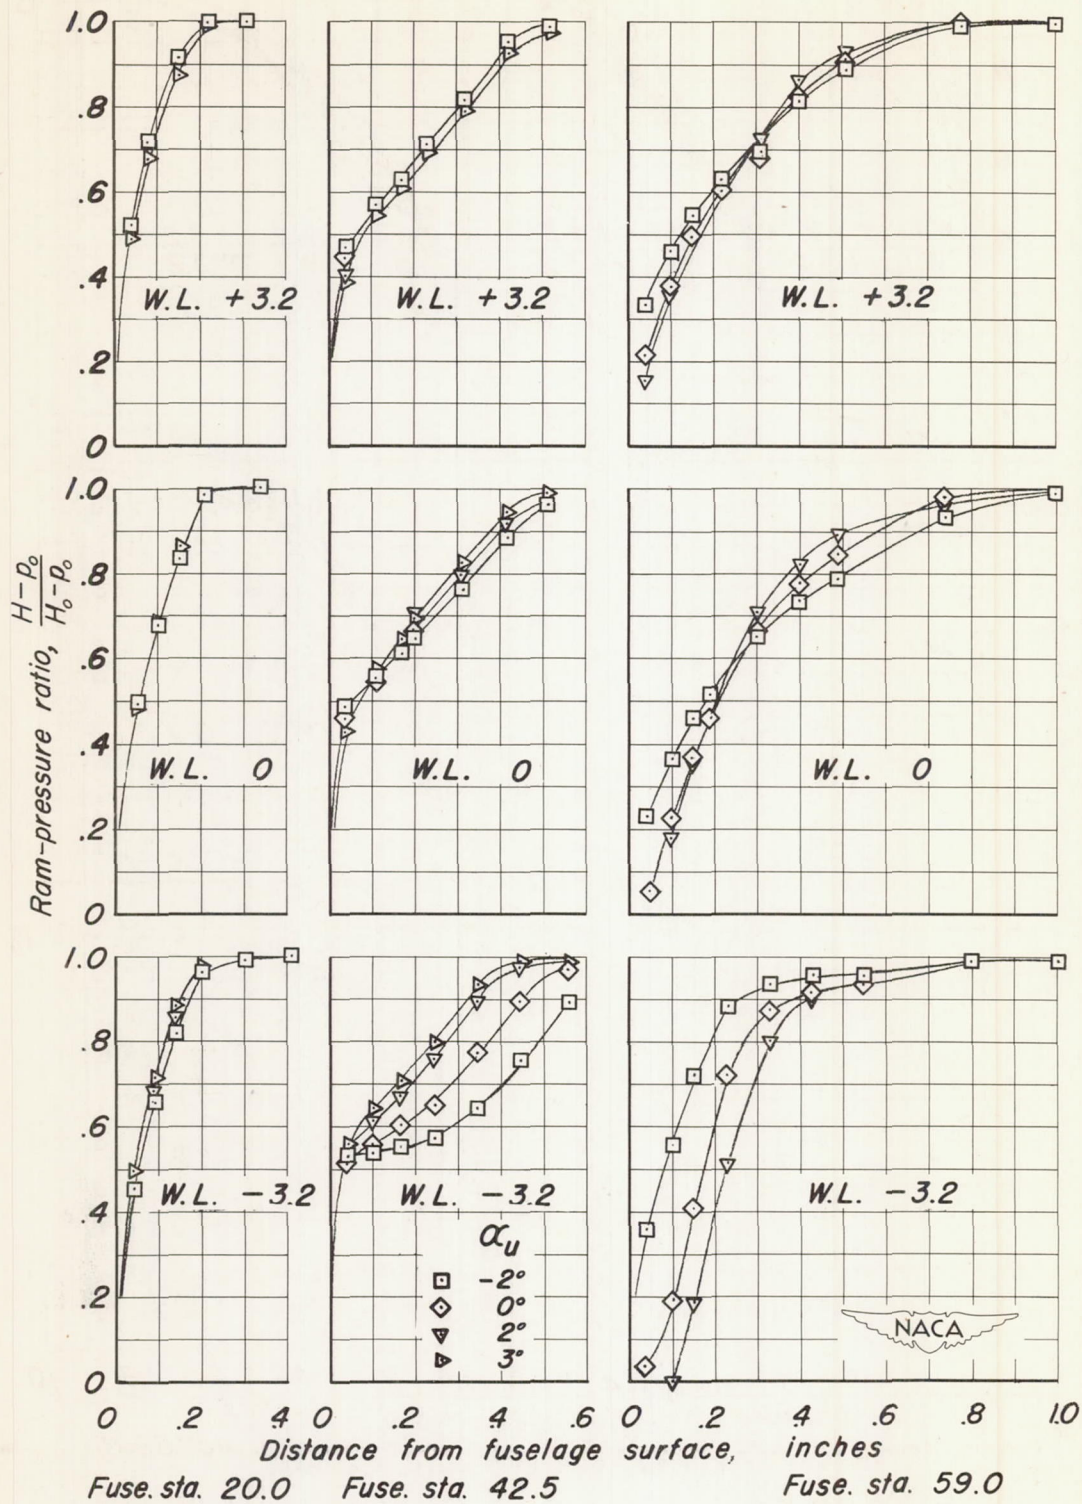 1.0
.8
.6
.4
.2
0
W.L. +3.2
W.L. +3.2
W.L. +3.2
1.0
.8
.6
.4
.2
0
W.L. 0
W.L. 0
W.L. 0
Ram-pressure ratio, H-p₀ / H₀-p₀
1.0
.8
.6
.4
.2
0
W.L. -3.2
W.L. -3.2
W.L. -3.2
αu
-2°
0°
2°
3°
NACA
0 .2 .4 0 .2 .4 .6 0 .2 .4 .6 .8 1.0
Distance from fuselage surface, inches
Fuse. sta. 20.0 Fuse. sta. 42.5 Fuse. sta. 59.0